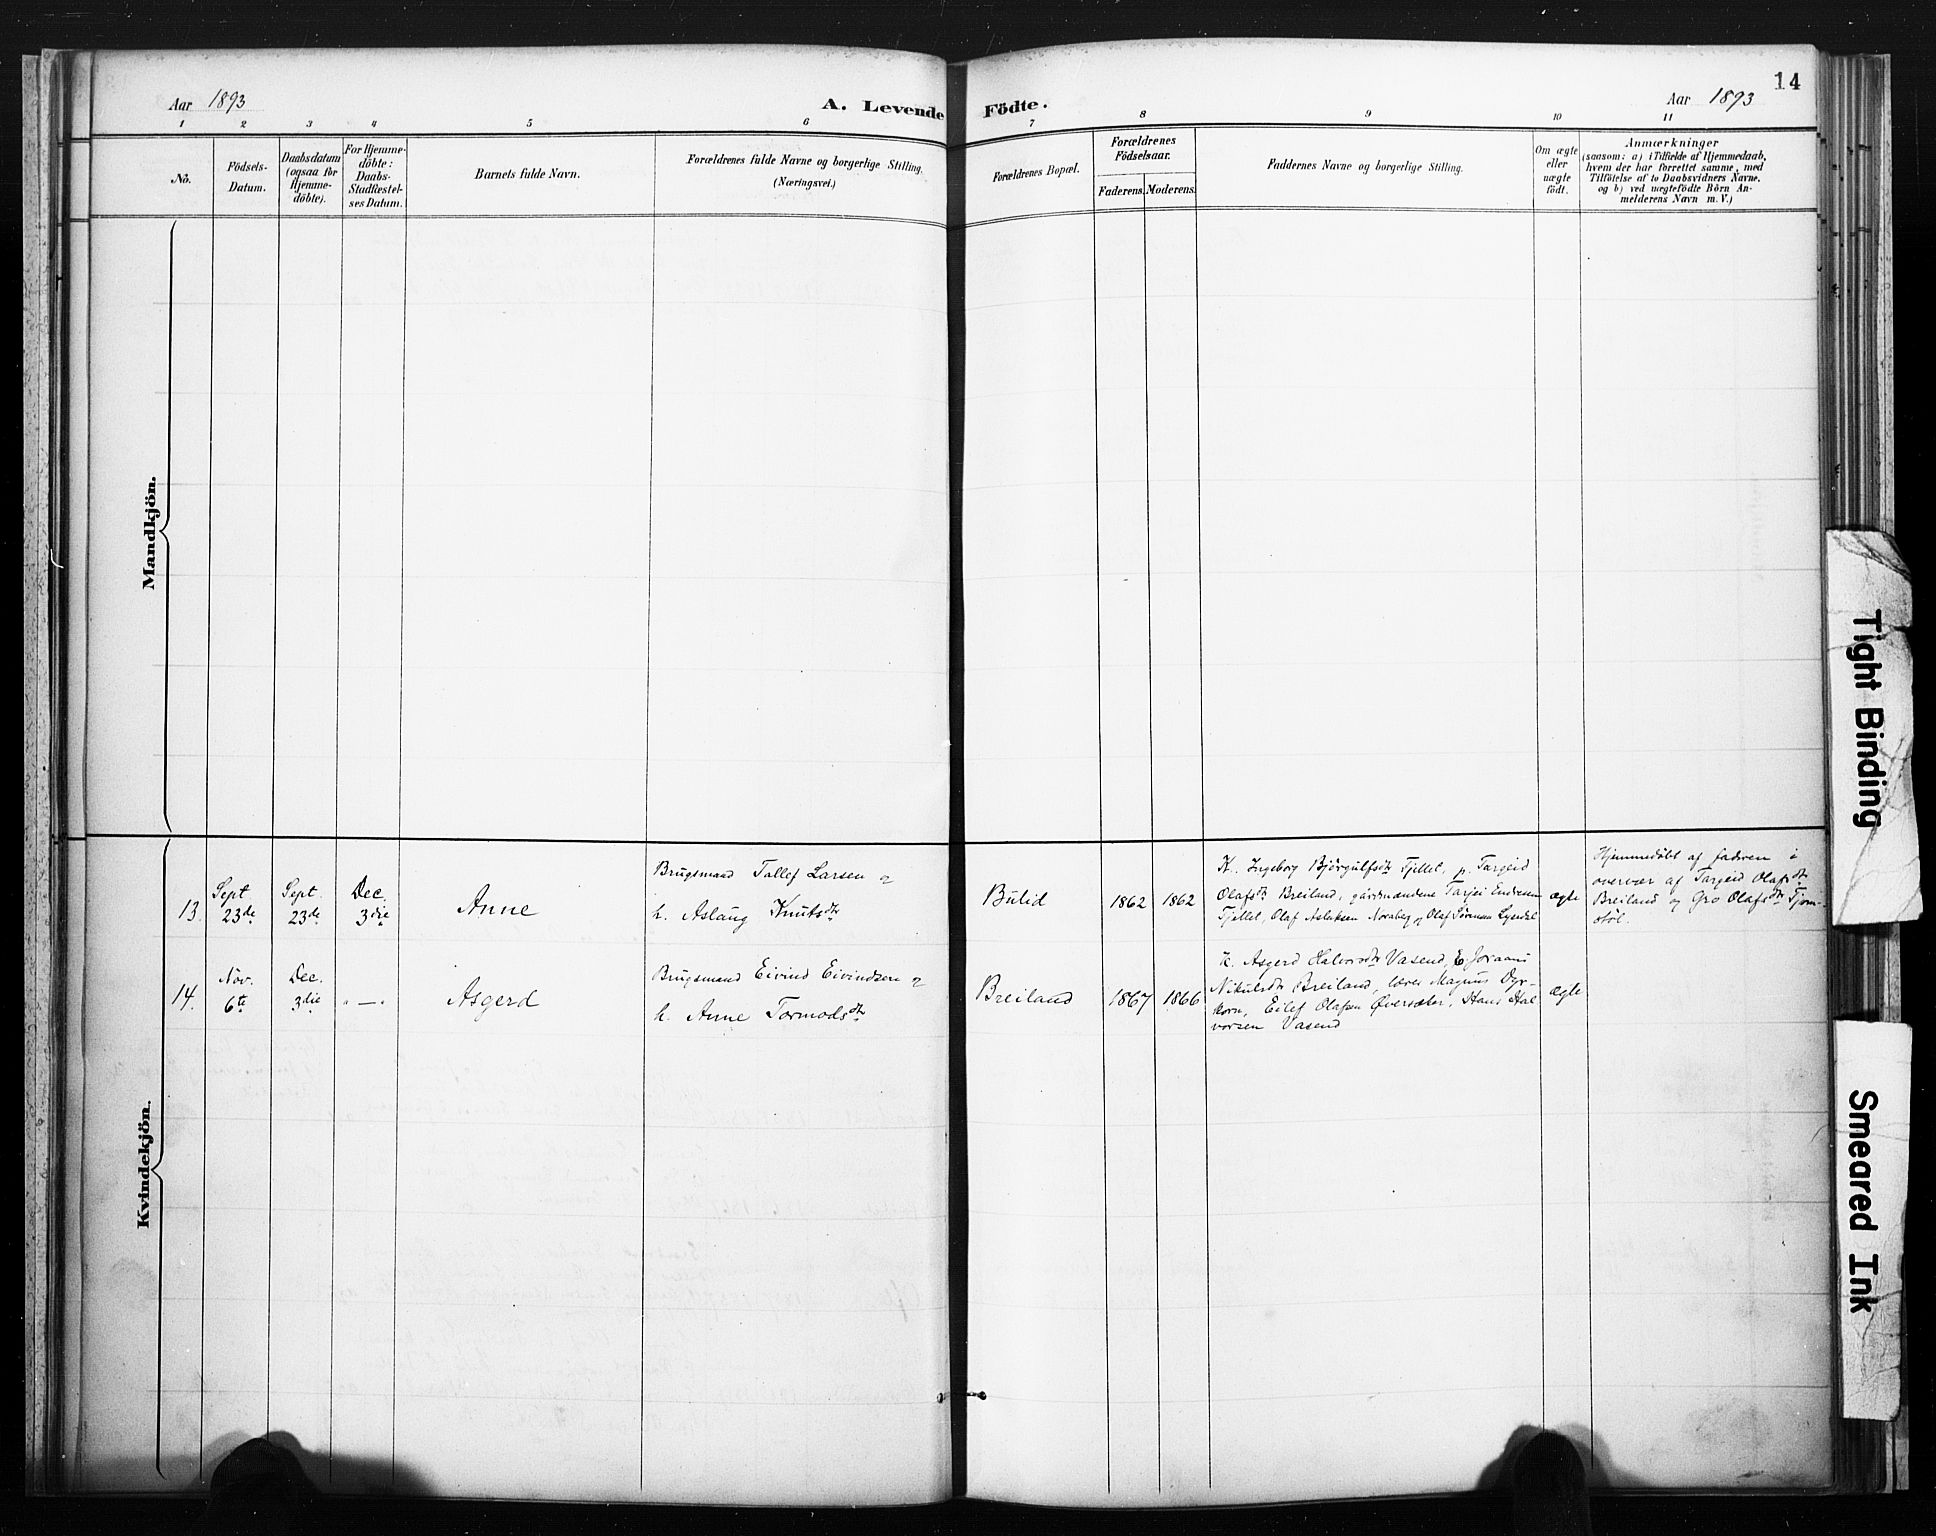 14
Aar 1893
A. Levende Födte.
Aar 1893
1 2 3 4 5 6 7 8 9 10 11
No.
Födsels-
Datum.
Daabsdatum
(ogsaa for
Hjemme-
döbte).
For Hjemme-
döbte:
Daabs-
Stadfæstel-
ses Datum.
Barnets fulde Navn.
Forældrenes fulde Navne og borgerlige Stilling.
(Næringsvei.)
Forældrenes Bopæl.
Forældrenes
Födselsaar.
Faderens. Moderens.
Faddernes Navne og borgerlige Stilling.
Om ægte
eller
uægte
födt.
Anmærkninger
(saasom: a) i Tilfælde af Hjemmedaab,
hvem der har forrettet samme, med
Tilföielse af to Daabsvidners Navne,
og b) ved uægtefödte Börn An-
melderens Navn m. V.)
Mandkjön.
Kvindekjön.
13.
Sept
23de
Sept.
23de
Dec.
3die
Anne
Brugsmand Tallef Larsen og
h. Aslaug Knutsdtr
Bulid
1862
1862
K. Ingeborg Björgulfsdtr Tjellel, p. Targerd
Olafsdtr Breiland, gårdmændene Tarjei Endresen
Tjellel, Olaf Aslaksen Noraberg og Olaf Lysedal
ægte
Hjemmedöbt af fadren i
overvær af Targerd Olafsdtr
Breiland og Gro Olafsdtr Tjom-
stöl.
14.
Nov.
6te
Dec.
3die
" — "
Asgerd
Brugsmand Eivind Eivindsen og
h. Anne Tormodsdtr
Breiland
1867
1866
K. Asgerd Halvorsdtr Vasend,
Nikulsdtr Breiland, lærer Magnus Dyr-
korn, Eilef Olafsen Øversæter, Hans Hal
vorsen Vasend
ægte
Tight Binding
Smeared Ink